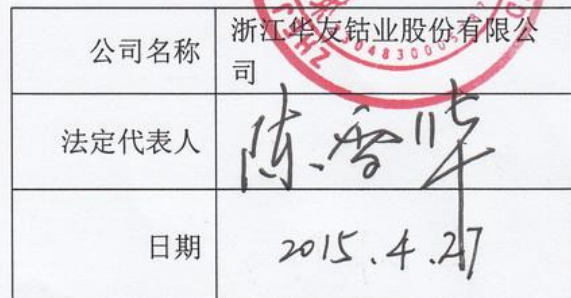 公司名称
浙江华友钴业股份有限公
司
法定代表人
陈雪华
日期
2015.4.27